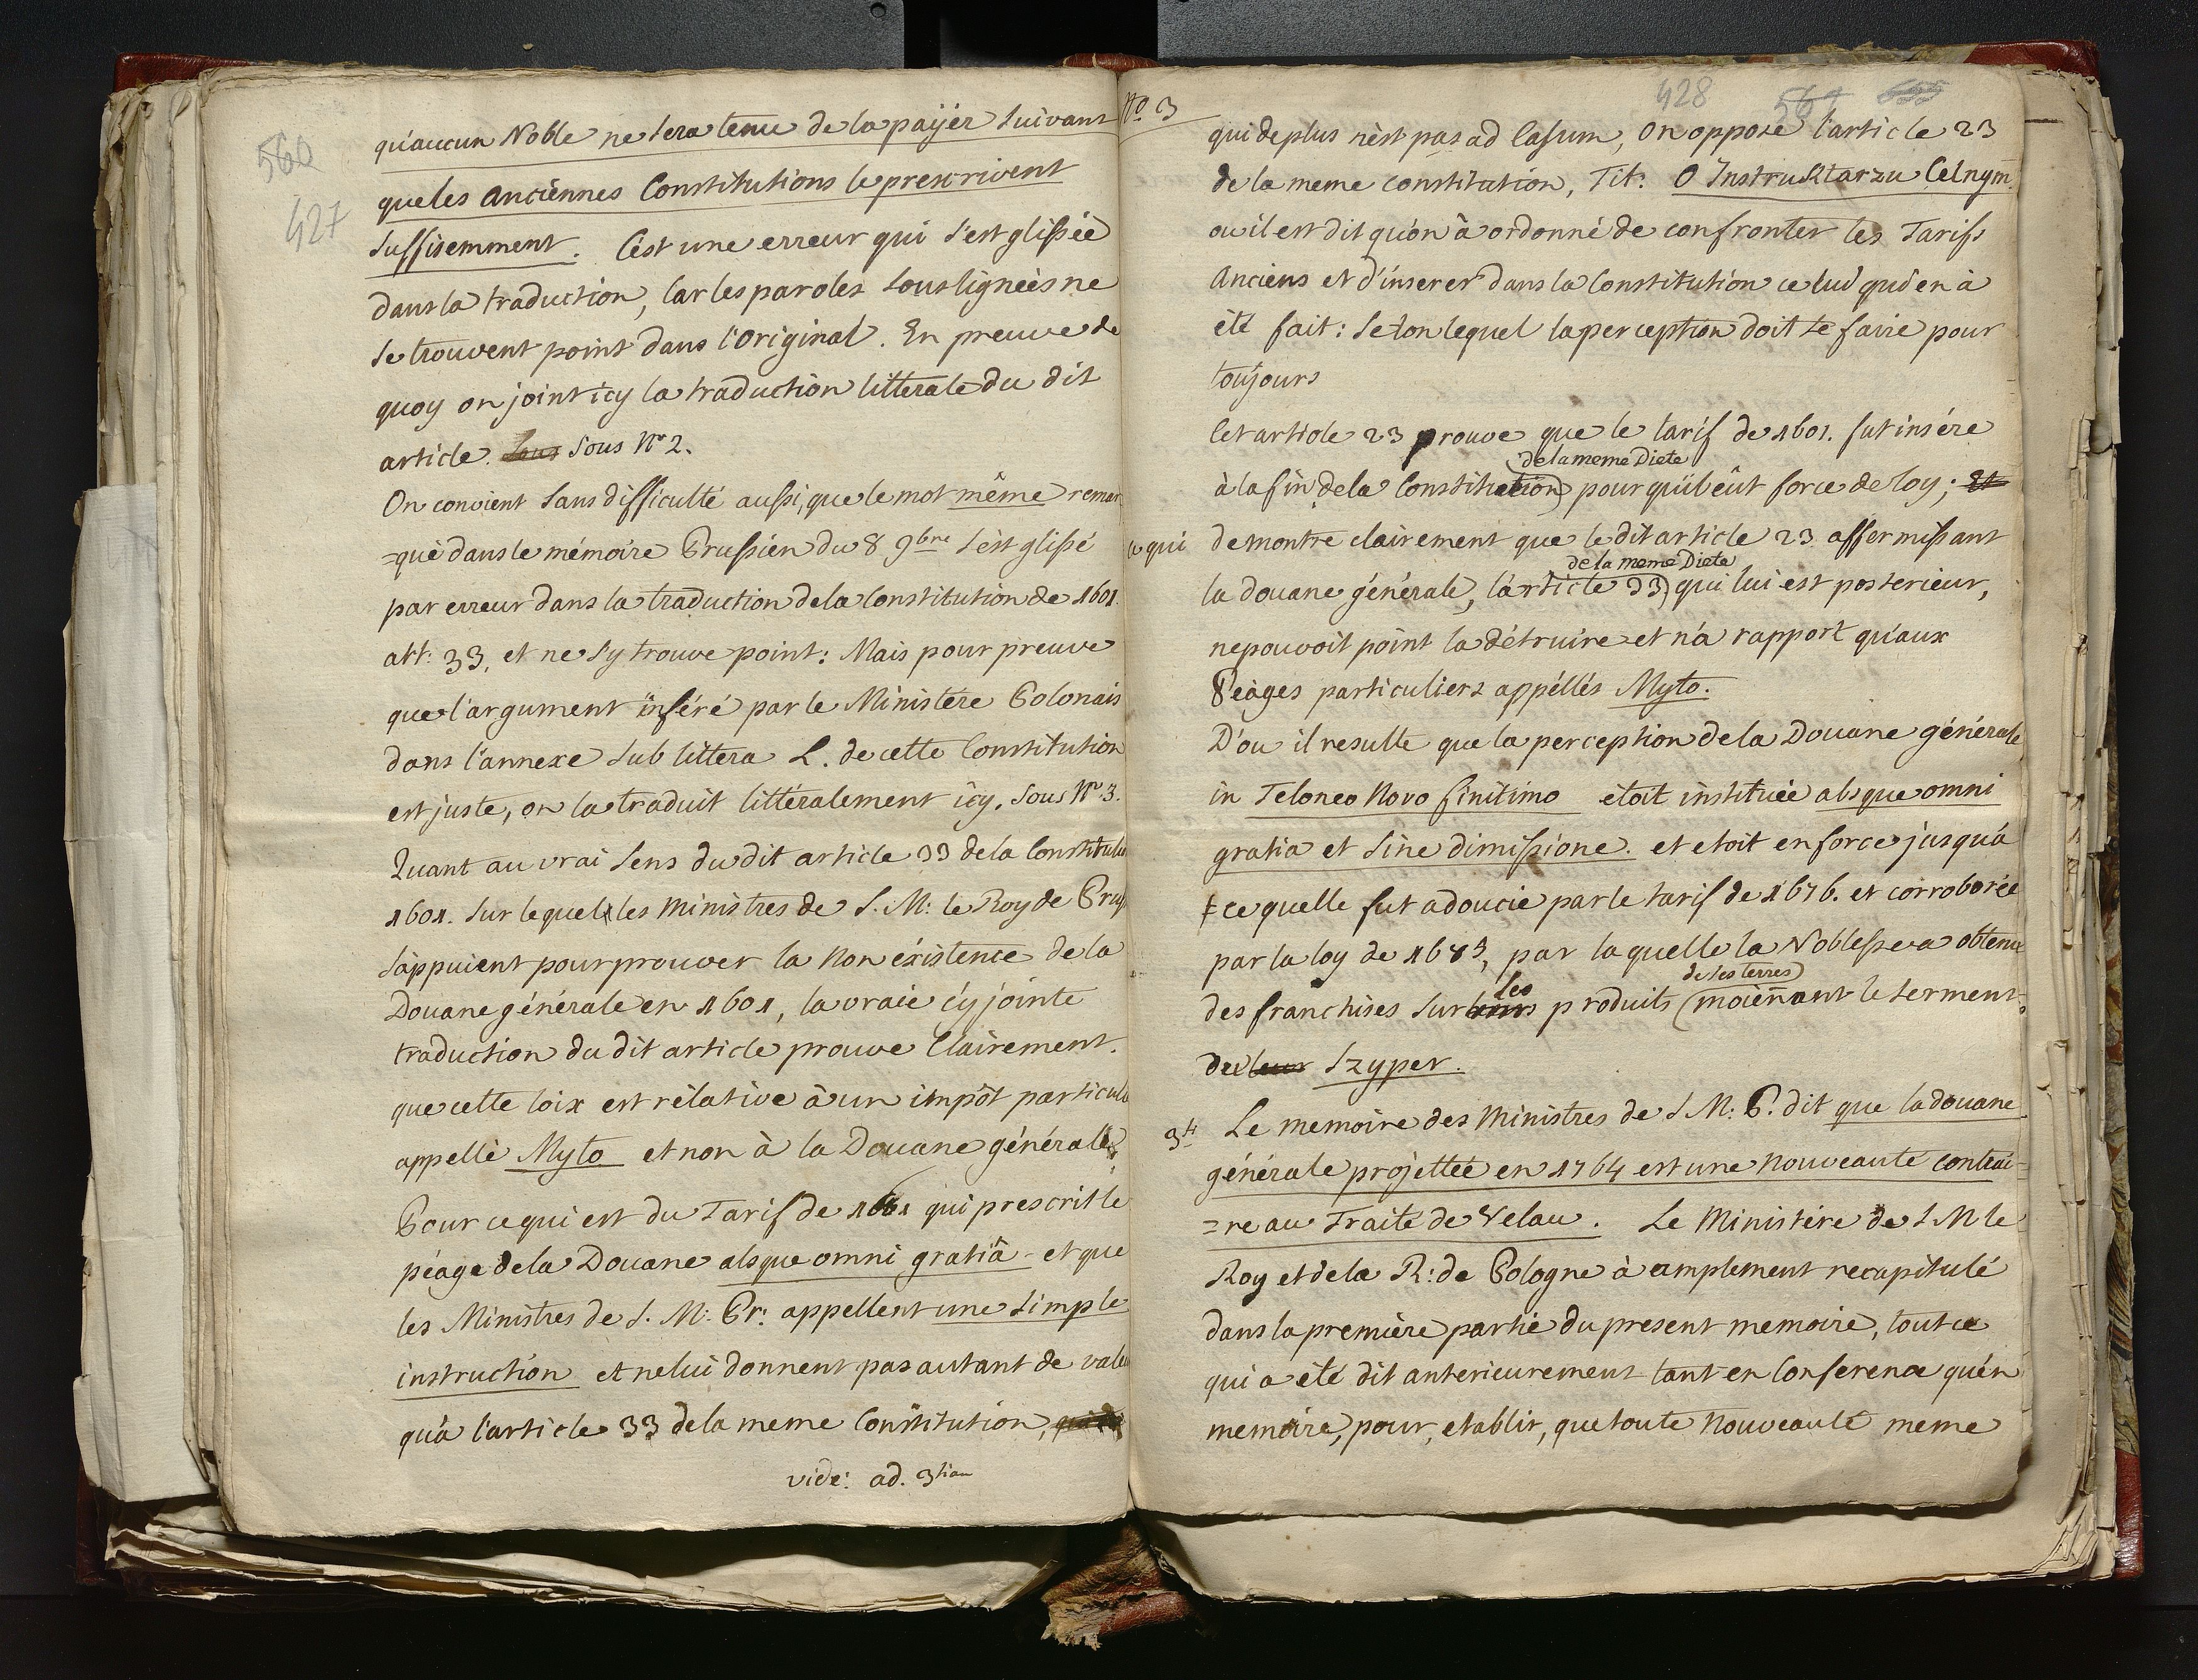 560
427
qu'aucun Noble ne sera tenu de la païjer suivant
que les anciènnes Constitutions le prescrivent
suffisemment. C'est une erreur qui s'est glissée
dans la traduction, Car les paroles souslignèes ne
se trouvent point dans l'original. En preuve de
quoy on joint icy la traduction litterale du dit
article. sous Sous N.º 2.
On convient sans difficulté aussi, que le mot même remar
=què dans le mémoire Prussien du 8 9bre s'èst glissé
par erreur dans la traduction de la Constitution de 1601.
art: 33, et ne s'y trouve point: Mais pour preuve
que l'argument inféré par le Ministère Polonais
dans l'annexe sub littera L. de cette Constitution
est juste, on la traduit littèralement icy. Sous Nº 3.
Quant au vrai sens du dit article 33 de la Constitutio
1601. sur lequel les Ministres de S. M: le Roy de Prus
s'appuient pour prouver la Non éxistence de la
Douane générale en 1601, la vraie cy jointe
traduction du dit article prouve Clairement.
que cette loix est rélative à un impôt particul
appellè Myto et non à la Douane générale
Pour ce qui est du Tarif de 1601 qui prescrit le
péage de la Douane absque omni gratiâ - et que
les Ministres de S. M: Pr: appellent une simple
instruction et ne lui donnent pas autant de vale
qu'à l'article 33 de la meme Constitution,
vide: ad. 3tiam
Nº 3
428 561
qui de plus n'èst pas ad Casum, On oppose l'article 23
de la meme constitution, Tit: O Instruktarzu Celnym.
ou il est dit qu'on à ordonné de confronter les Tarifs
Anciens et d'inserer dans la Constitution celui qui en à
été fait: selon lequel la perception doit se faire pour
toujours
Cet article 23 prouve que le tarif de 1601. fut insére
de la meme Diete
à la fin de la Constitution pour qu'il eût force de loy; Et
ce qui demontre clairement que le dit article 23 affermissant
de la meme Diete
la douane générale, l'article 33 qui lui est posterieur,
ne pouvoit point la détruire et n'a rapport qu'aux
Péages particuliers appéllés Myto.
D'ou il resulte que la perception de la Douane générale
in Teloneo Novo finitimo étoit instituée absque omni
gratia et sine dimissione. et etoit en force jusqu'à
ce quelle fut adoucie par le tarif de 1676. et corroborée
par la loy de , par laquelle la Noblesse a obtenu
de ses terres
des franchises sur leurs les produits moiennant le serment
du leur Szyper.
3º Le memoire des Ministres de S M: P. dit que la douane
générale projettée en 1764 est une Nouveauté contrai=
=re au Traité de Velau. Le Ministère de S M le
Roy et de la R: de Pologne à amplement recapitulé
dans la première partie du present memoire, tout ce
qui a été dit anterieurement tant en Conference qu'en
memoire, pour, etablir, que toute Nouveauté meme